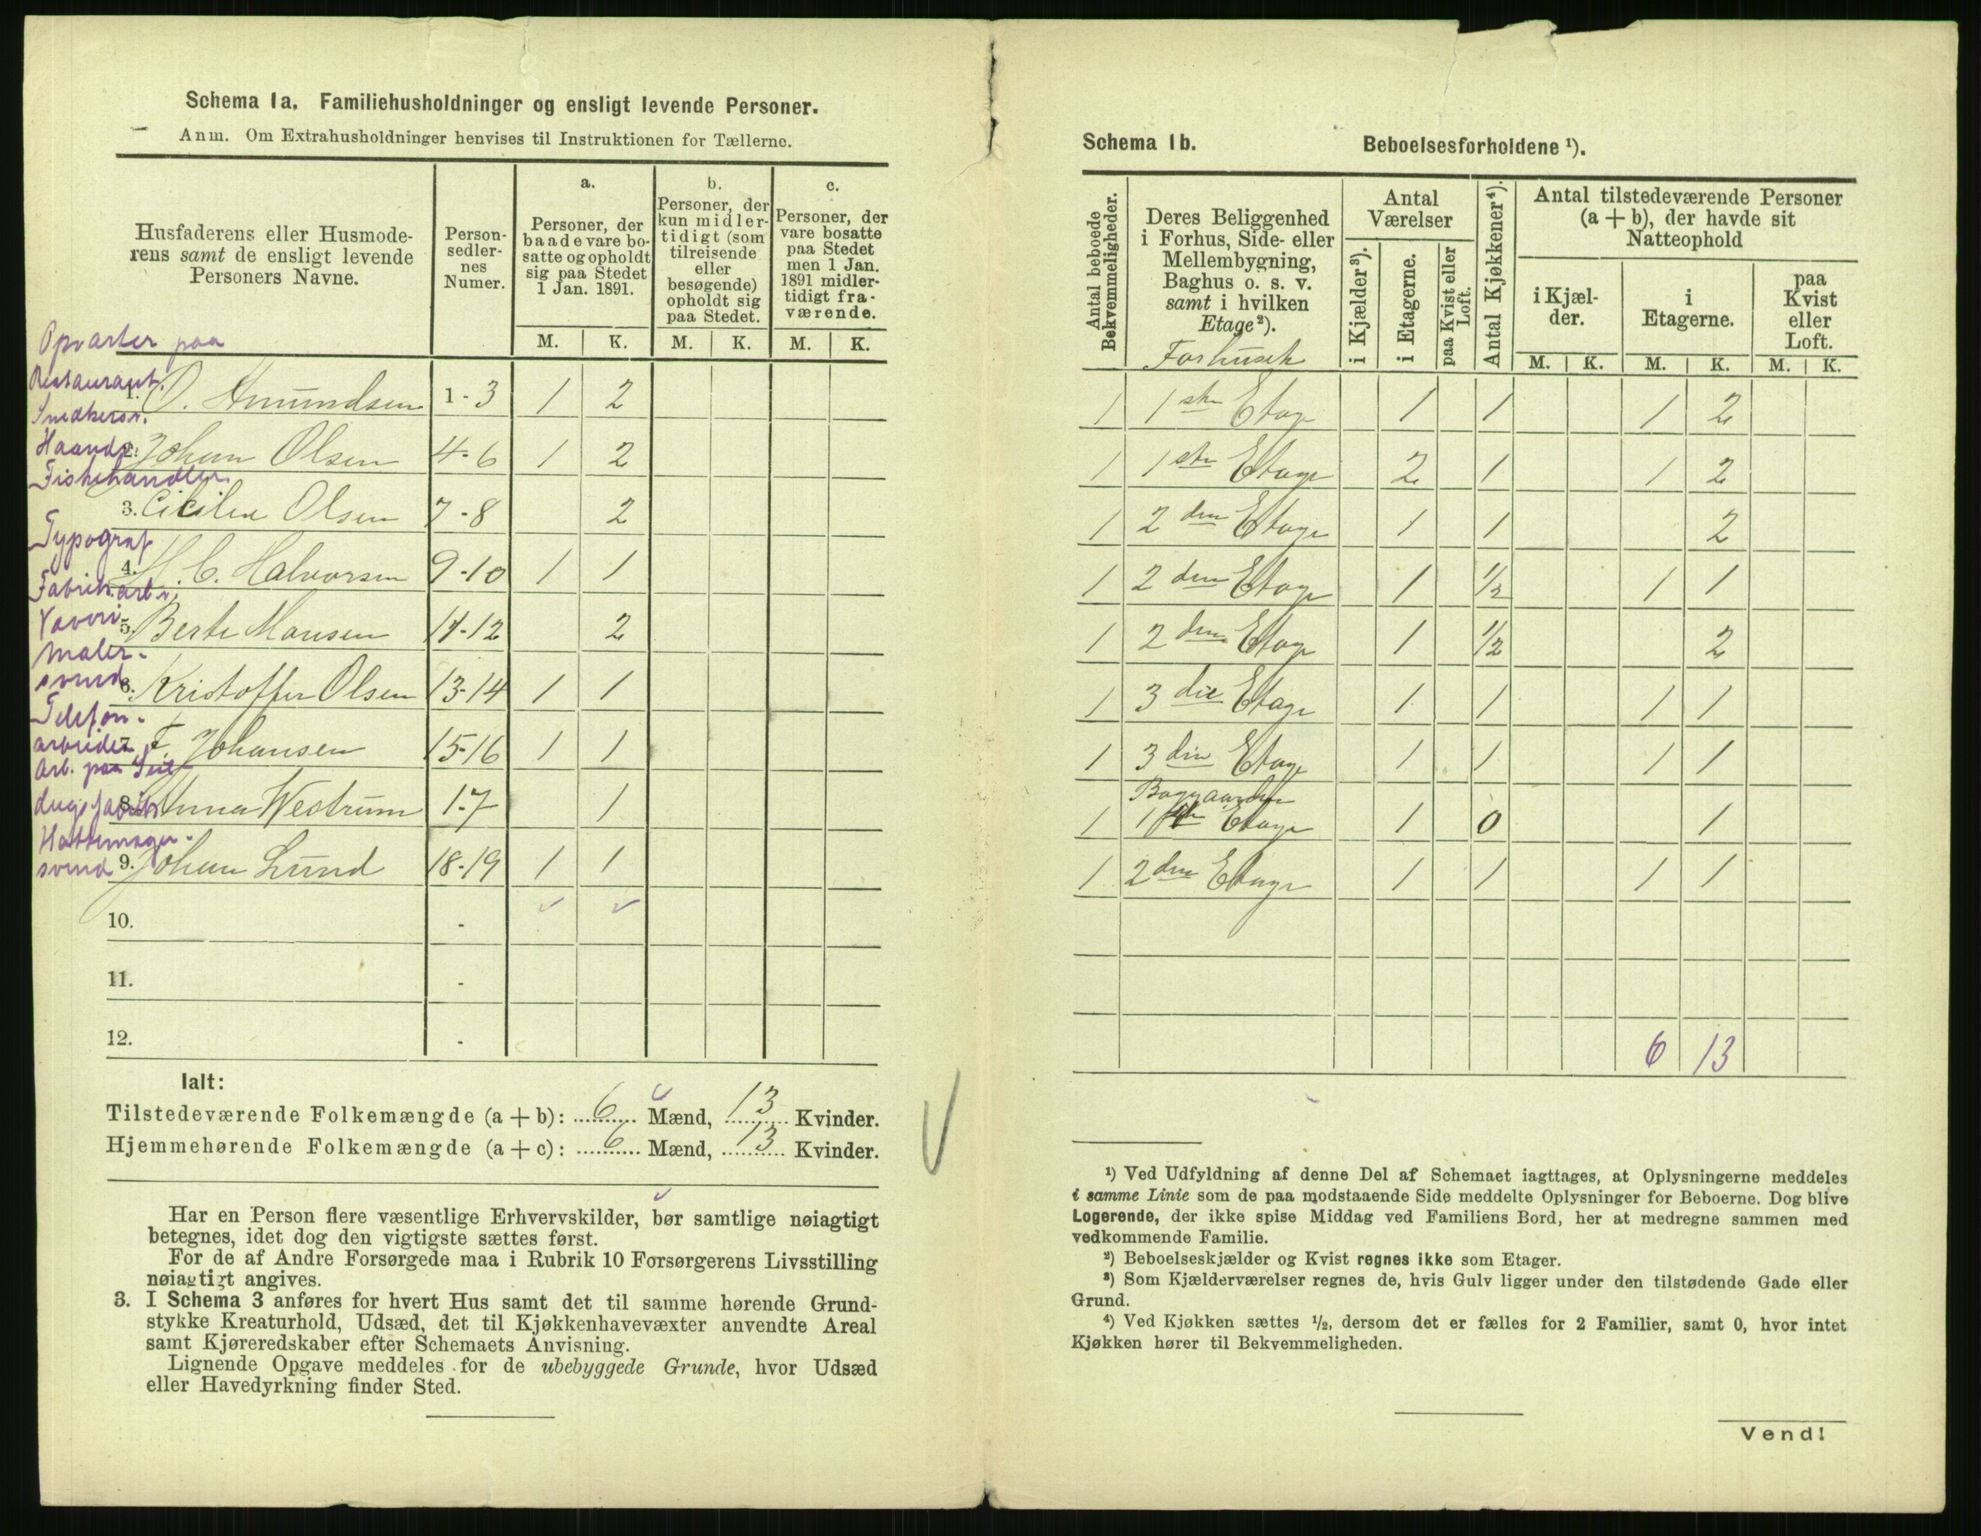 Schema 1a. Familiehusholdninger og ensligt levende Personer.
Anm. Om Extrahusholdninger henvises til Instruktionen for Tællerne.
Husfaderens eller Husmode-
rens samt de ensligt levende
Personers Navne.
Person-
sedler-
nes
Numer.
a.
Personer, der
baade vare bo-
satte og opholdt
sig paa Stedet
1 Jan. 1891.
b.
Personer, der
kun midler-
tidigt (som
tilreisende
eller
besøgende)
opholdt sig
paa Stedet.
c.
Personer, der
vare bosatte
paa Stedet
men 1 Jan.
1891 midler-
tidigt fra-
værende.
M. K. M. K. M. K.
Opvarter paa
Restaurant.
1. O. Amundsen 1-3 1 2
Snedkersv.
Haandv.
2. Johan Olsen 4-6 1 2
Fiskehandler
3. Cicilie Olsen 7-8 2
Typograf
4. H. C. Halvorsen 9-10 1 1
Fabrikarb.
5. Berte Monsen 11-12 2
Maler-
svend
6. Kristoffer Olsen 13-14 1 1
Telefon-
arbeider
7. F. Johansen 15-16 1 1
Arb. paa Seil
dugsfabrik
8. Anna Westrum 17 1
Hattemager-
svend
9. Johan Lund 18-19 1 1
10. -
11. -
12. -
Ialt:
Tilstedeværende Folkemængde (a + b): 6 Mænd, 13 Kvinder.
Hjemmehørende Folkemængde (a + c): 6 Mænd, 13 Kvinder.
Har en Person flere væsentlige Erhvervskilder, bør samtlige nøiagtigt
betegnes, idet dog den vigtigste sættes først.
For de af Andre Forsørgede maa i Rubrik 10 Forsørgerens Livsstilling
nøiagtigt angives.
3. I Schema 3 anføres for hvert Hus samt det til samme hørende Grund-
stykke Kreaturhold, Udsæd, det til Kjøkkenhavevæxter anvendte Areal
samt Kjøreredskaber efter Schemaets Anvisning.
Lignende Opgave meddeles for de ubebyggede Grunde, hvor Udsæd
eller Havedyrkning finder Sted.
Schema 1b. Beboelsesforholdene ¹).
Antal beboede
Bekvemmeligheder.
Deres Beliggenhed
i Forhus, Side- eller
Mellembygning,
Baghus o. s. v.
samt i hvilken
Etage²).
Antal
Værelser
i Kjælder³).
i Etagerne.
paa Kvist eller
Loft.
Antal Kjøkkener⁴).
Antal tilstedeværende Personer
(a + b), der havde sit
Natteophold
i Kjæl-
der.
i
Etagerne.
paa
Kvist
eller
Loft.
M. K. M. K. M. K.
Forhuset
1 1ste Etage 1 1 1 2
1 1ste Etage 2 1 1 2
1 2den Etage 1 1 2
1 2den Etage 1 1/2 1 1
1 2den Etage 1 1/2 2
1 3die Etage 1 1 1 1
1 3die Etage 1 1 1 1
Baggaarden
1 1ste Etage 1 0 1
1 2den Etage 1 1 1 1
6 13
¹) Ved Udfyldning af denne Del af Schemaet iagttages, at Oplysningerne meddeles
i samme Linie som de paa modstaaende Side meddelte Oplysninger for Beboerne. Dog blive
Logerende, der ikke spise Middag ved Familiens Bord, her at medregne sammen med
vedkommende Familie.
²) Beboelseskjælder og Kvist regnes ikke som Etager.
³) Som Kjælderværelser regnes de, hvis Gulv ligger under den tilstødende Gade eller
Grund.
⁴) Ved Kjøkken sættes ½, dersom det er fælles for 2 Familier, samt 0, hvor intet
Kjøkken hører til Bekvemmeligheden.
Vend!